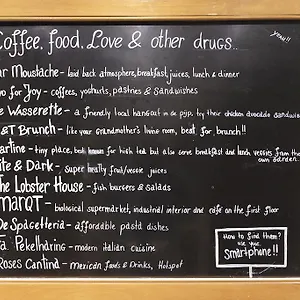 Coffee, food, Love & other drugs..
yeah!!
ar Moustache - laid back atmosphere, breakfast, juices, lunch & dinner
wo for Joy - coffees, yoghurts, pastries & Sandwishes
e Wasserette - a friendly local hangout in de pijp, try their chicken avocado sandwi
&T Brunch - like your grandmother's living room, best for brunch!!
artine - tiny place, best for high tea but also serve breakfast and lunch veggies from their own garden..
ite & Dark - super healty fruit/veggie juices
he Lobster House - fish burgers & Salads
marqt - biological supermarket, industrial interior and cafe on the first floor
De Spagetteria - affordable pasta dishes
a Pekelharing - modern italian cuisine
Roses Cantina - mexican foods & Drinks, Hotspot
How to find them?
use your
Smartphone!!